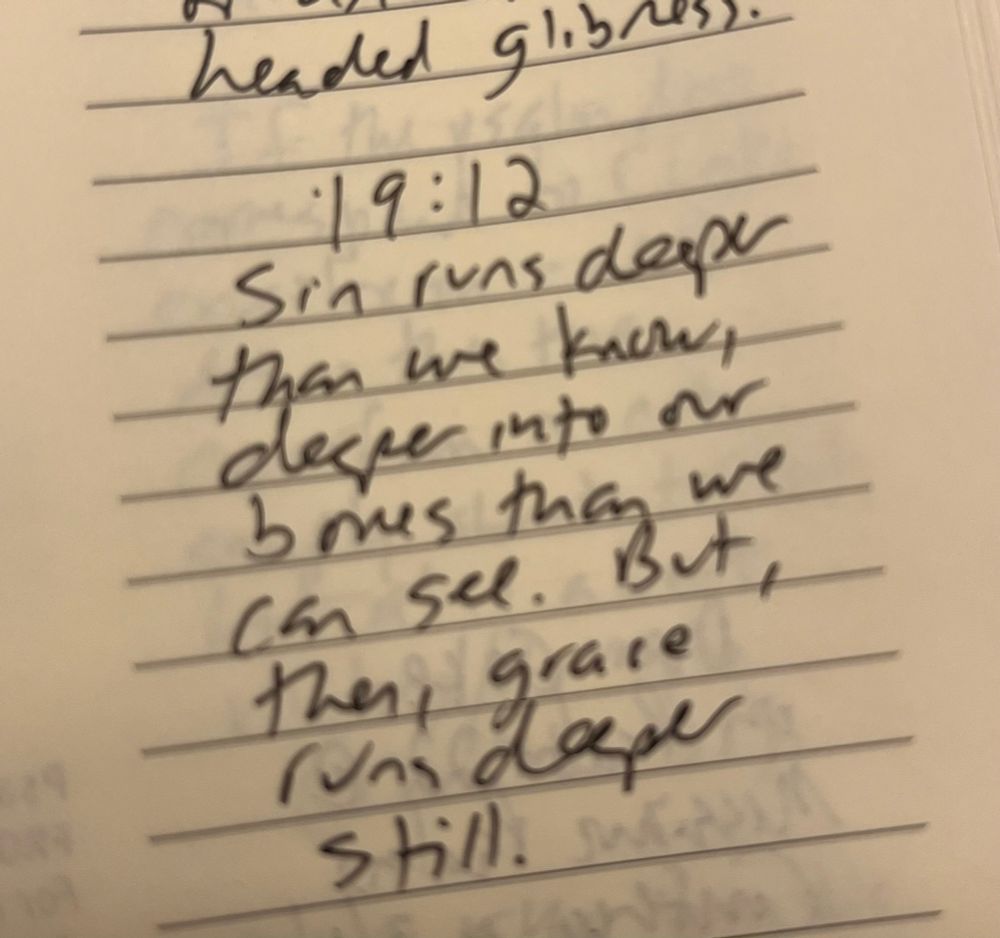 headed glibness.
19:12
Sin runs deeper
than we know,
deeper into our
bones than we
can see. But,
then, grace
runs deeper
still.